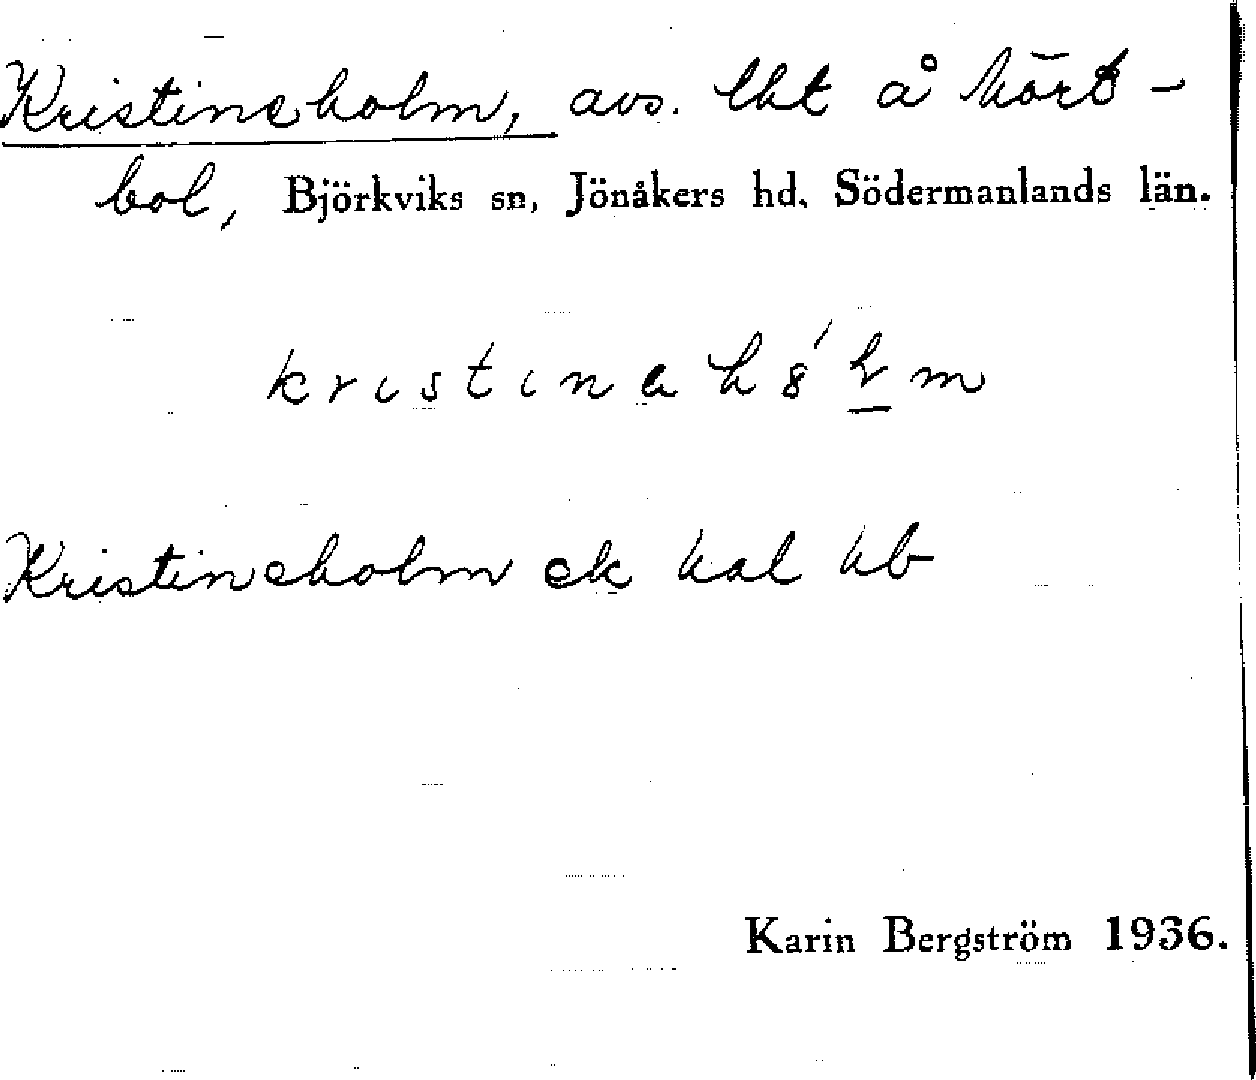 Kristineholm, avs. lht å Hört-
bol, Björkviks sn, Jönåkers hd, Södermanlands län.
kristinah
Kristineholm ek kal hb
Karin Bergström 1936.